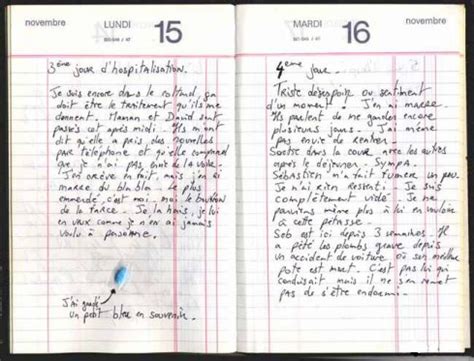 novembre
LUNDI
15
3ème jour d'hospitalisation.
Je suis encore dans le coltard, ça
doit être le traitement qu'ils me
donnent. Maman et David sont
passés cet après midi. Ils m'ont
dit qu'elle a pris des nouvelles
par téléphone et qu'elle comprend
que je n'ai pas envie de la voir.
J'en crève en fait, mais j'en ai
marre du bla bla. Le plus
emmerdé, c'est moi, moi le bouffon
de la farce. Je la hais, je lui
en veux comme je n'en ai jamais
voulu à personne.
J'ai gardé
un petit bleu en souvenir.
MARDI
16
novembre
4ème jour
Triste désespoir ou sentiment
d'un moment ! J'en ai marre.
Ils parlent de me garder encore
plusieurs jours. J'ai même
pas envie de rentrer.
Sortie dans la cour avec les autres
après le déjeuner. SYMPA.
Sébastien m'a fait fumer un peu.
Je n'ai rien ressenti. Je suis
complètement vidé. Je ne
parviens même plus à lui en vouloir
à cette pétasse.
Seb est ici depuis 3 semaines. Il
a pété les plombs grave depuis
un accident de voiture où son meilleur
pote est mort. C'est pas lui qui
conduisait mais il ne s'en remet
pas de s'être endormi.